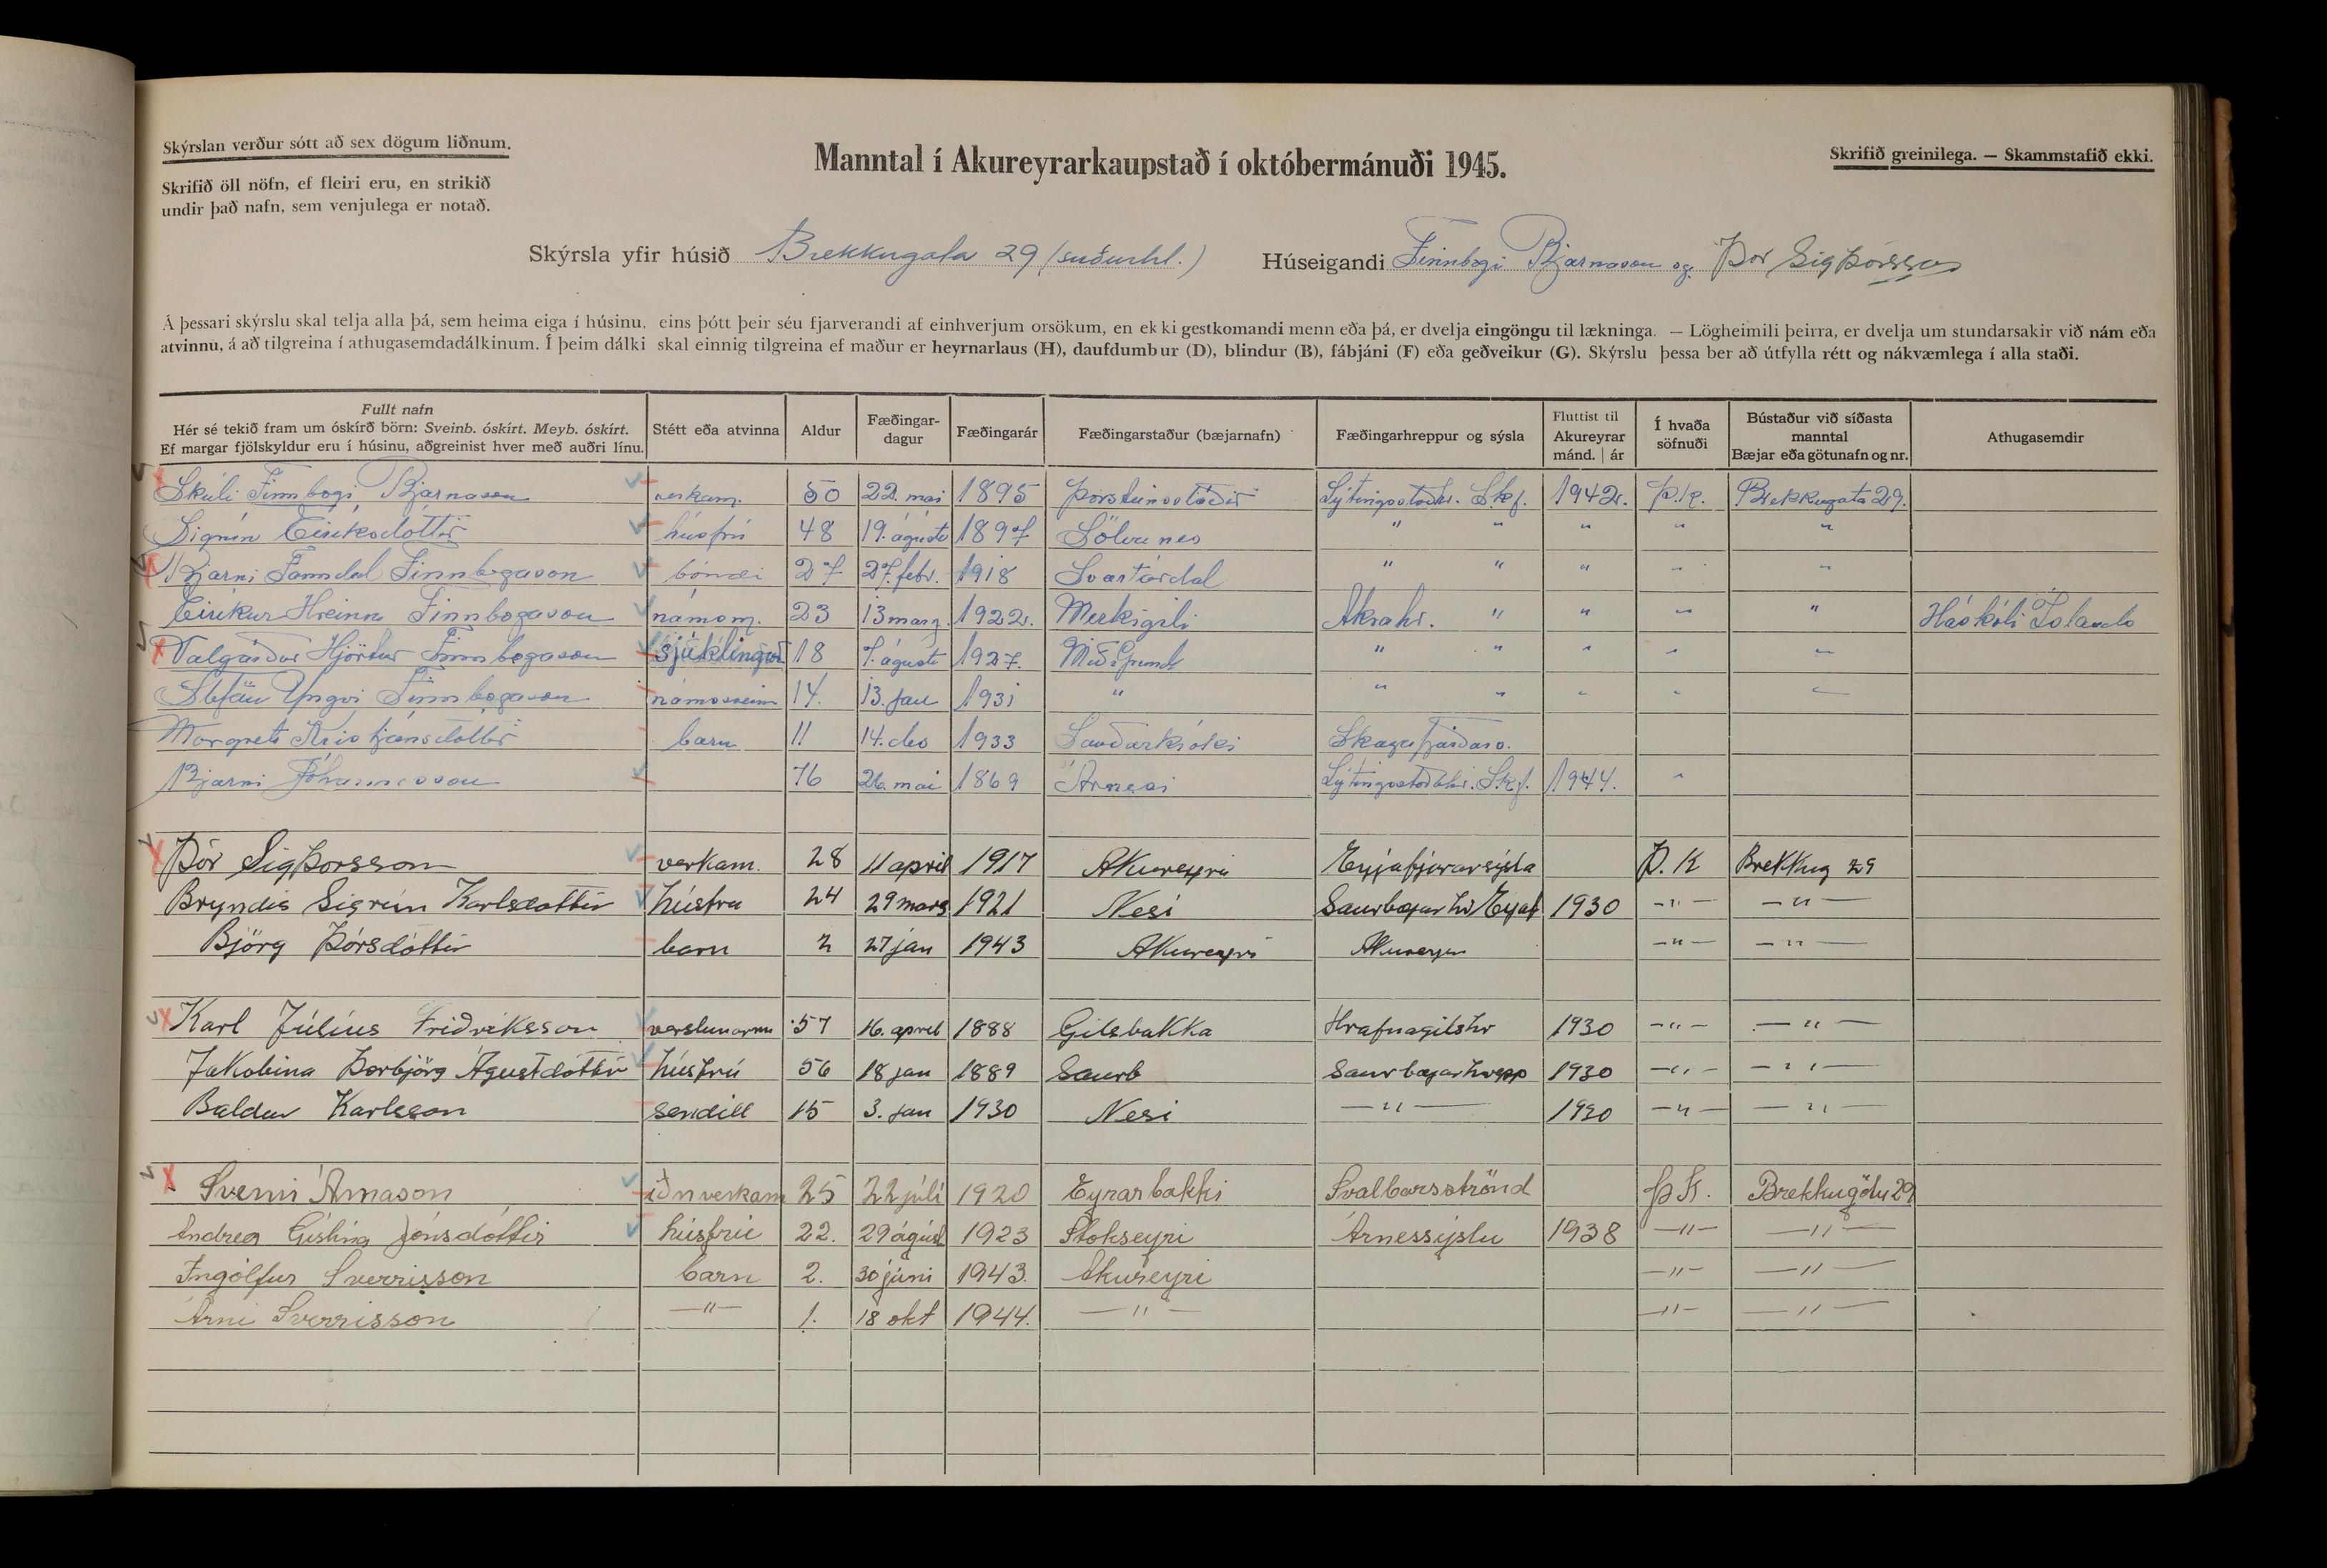 Skýrslan verður sótt að sex dögum liðnum.
Skrifið öll nöfn, ef fleiri eru, en strikið
undir það nafn, sem venjulega er notað.
Manntal í Akureyrarkaupstað í októbermánuði 1945.
Skrifið greinilega. — Skammstafið ekki.
Skýrsla yfir húsið Brekkugata 29 (suðurhl.) Húseigandi Finnbogi Bjarnason og Þór Sigþórsson
Á þessari skýrslu skal telja alla þá, sem heima eiga í húsinu, eins þótt þeir séu fjarverandi af einhverjum orsökum, en ekki gestkomandi menn eða þá, er dvelja eingöngu til lækninga. — Lögheimili þeirra, er dvelja um stundarsakir við nám eða
atvinnu, á að tilgreina í athugasemdadálkinum. Í þeim dálki skal einnig tilgreina ef maður er heyrnarlaus (H), daufdumbur (D), blindur (B), fábjáni (F) eða geðveikur (G). Skýrslu þessa ber að útfylla rétt og nákvæmlega í alla staði.
Fullt nafn Hér sé tekið fram um óskírð börn: Sveinb. óskírt. Meyb. óskírt. Ef margar fjölskyldur eru í húsinu, aðgreinist hver með auðri línu. Stétt eða atvinna Aldur Fæðingar-dagur Fæðingarár Fæðingarstaður (bæjarnafn) Fæðingarhreppur og sýsla Fluttist til Akureyrar mánd. | ár Í hvaða söfnuði Bústaður við síðasta manntal Bæjar eða götunafn og nr. Athugasemdir
Skúli Finnbogi Bjarnason verkam. 50 22. mai 1895 Þorsteinsstaðir Lýtingsstaðahr. Skf. 1942. Þ.k. Brekkugata 29.
Sigrún Eiríksdóttir húsfrú 48 19. ágústs 1897 Sölvanes " " " " "
Bjarni Fanndal Finnbogason bóndi 27 27. febr. 1918 Svartárdal " " " " "
Eiríkur Hreinn Finnbogason námsm. 23 13 marz. 1922. Merkigili Akrahr. " " " " Háskóli Íslands
Valgarður Hjörtur Finnbogason sjúklingur 18 7. ágústs 1927. Mið-Grund " " " " "
Stefán Yngvi Finnbogason námssveinn 14. 13. jan 1931 " " " " " "
Margrét Kristjánsdóttir barn 11 14. des 1933 Sauðárkróki Skagafjarðars.
Bjarni Jóhannesson 76 26. mai 1869 Lýtingsstaðahr. Skf. 1944. "
Þór Sigþorsson verkam. 28 11 april 1917 Akureyri Eyjafjararsýsla Þ.K Brekkug 29
Bryndís Sigrún Karlsdottir húsfru 24 29 mars 1921 Nesi Saurbæjar hr Eyaf 1930 —"— —"—
Björg Þórsdóttir barn 2 27 jan 1943 Akureyri Akureyri —"— —"—
Karl Júlíus Friðriksson verslunarm 57 16. april 1888 Gilsbakka Hrafnagilshr 1930 —"— —"—
Jakobina Þorbjörg Águstdóttir húsfrú 56 18 jan 1889 Saurb Saurbæjarhrepp 1930 —"— —"—
Baldur Karlsson sendill 15 3. jan 1930 Nesi —"— 1930 —"— —"—
Sverrir Árnason iðnverkam 25 22 júlí 1920 Eyrarbakki Svalbarsströnd Þ K. Brekkugötu 29
Andrea Gíslína Jónsdóttir húsfrú 22. 29 ágúst 1923 Stokseyri Árnessýslu 1938 —"— —"—
Ingólfur Sverrisson barn 2. 30 júni 1943. Akureyri —"— —"—
Árni Sverrisson —"— 1. 18 okt 1944. —"— —"— —"—